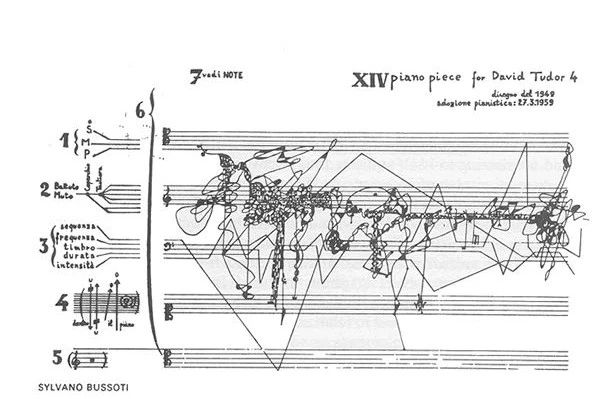 7 vedi NOTE
XIV piano piece for David Tudor 4
disegno del 1949
adozione pianistica: 27.3.1959
6
1
S
M
P
2
Battuto
Muto
Coperchio
Tastiera
3
sequenza
frequenza
timbro
durata
intensità
4
dentro
il
piano
5
SYLVANO BUSSOTI